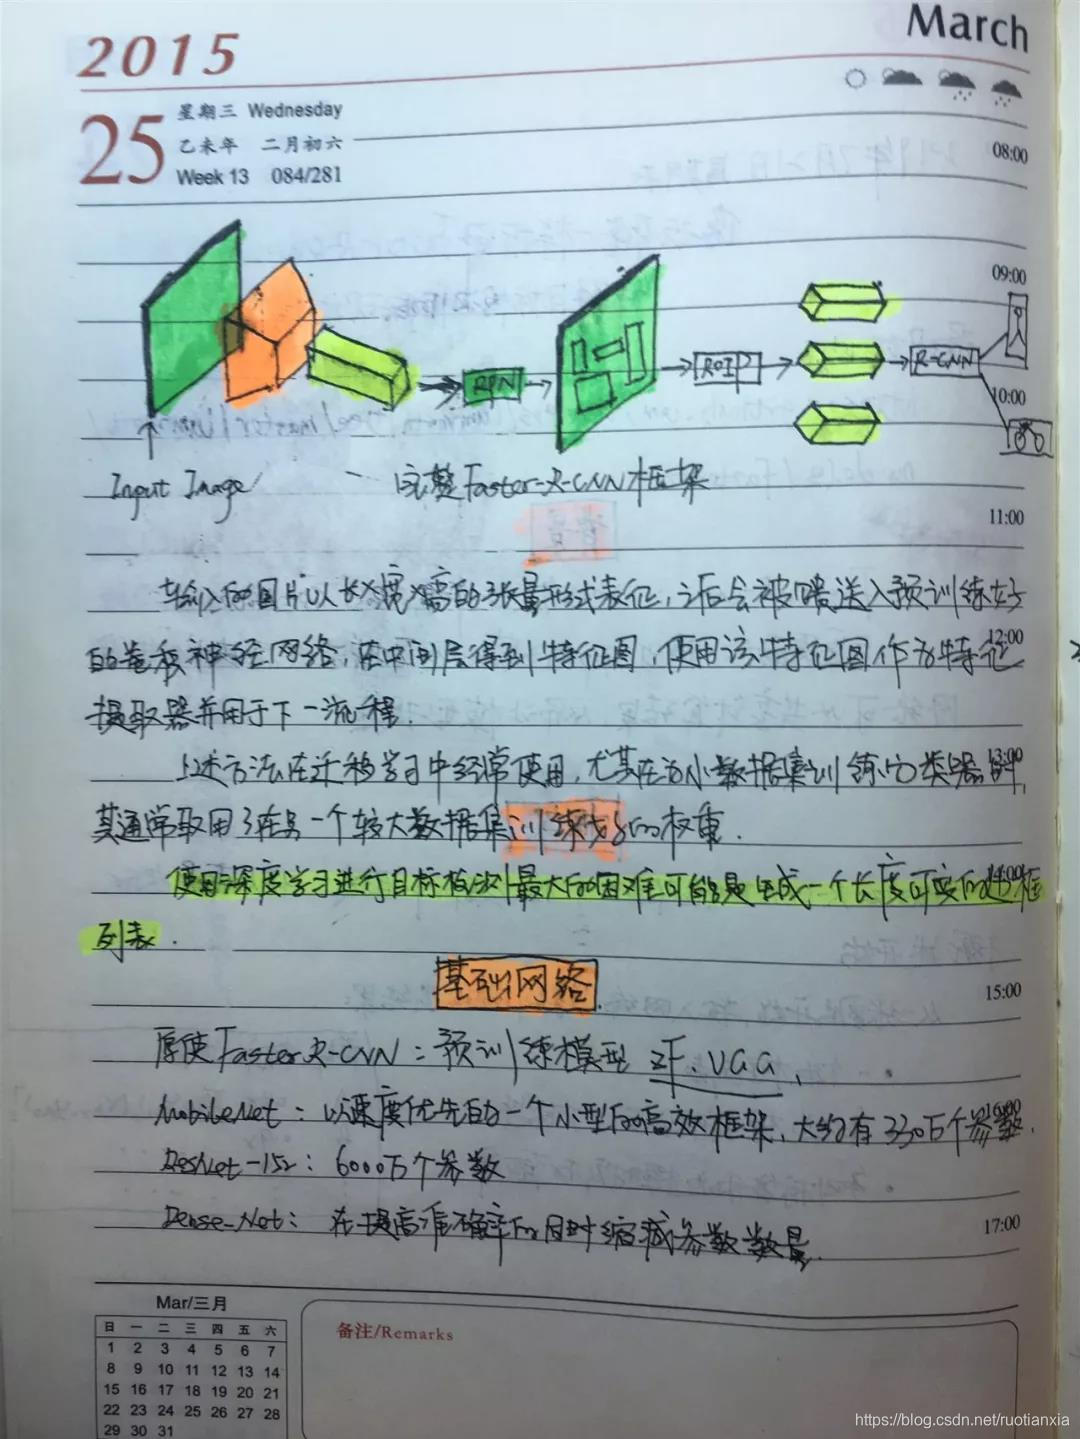 March
2015
25
星期三 Wednesday
乙未年 二月初六
Week 13 084/281
08:00
09:00
10:00
RPN
ROIP
R-CNN
Input Image
完整Faster-R-CNN框架
11:00
输入的图片以长X宽X高的张量形式表征,之后会被喂送入预训练好
12:00
的卷积神经网络,在中间层得到特征图,使用该特征图作为特征
提取器并用于下一流程.
13:00
上述方法在迁移学习中经常使用,尤其在为小数据集训练分类器时
其通常取用了在另一个较大数据集训练好的权重.
14:00
使用深度学习进行目标检测最大的困难可能是生成一个长度可变的边框
列表.
基础网络
15:00
Faster R-CNN:预训练模型 ZF.VGG,
MobileNet:以速度优先的一个小型的高效框架,大约有330万个参数.
16:00
ResNet-152:6000万个参数
Dense-Net:在提高准确率的同时缩减参数数量.
17:00
Mar/三月
日 一 二 三 四 五 六
1 2 3 4 5 6 7
8 9 10 11 12 13 14
15 16 17 18 19 20 21
22 23 24 25 26 27 28
29 30 31
备注/Remarks
https://blog.csdn.net/ruotianxia